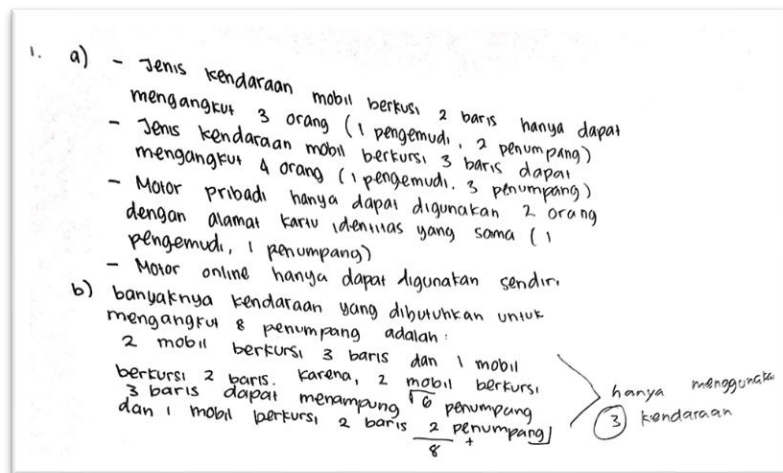 1. a) - Jenis kendaraan mobil berkusi 2 baris hanya dapat
mengangkut 3 orang (1 pengemudi, 2 penumpang)
- Jenis kendaraan mobil berkursi 3 baris dapat
mengangkut 4 orang (1 pengemudi. 3 penumpang)
- Motor pribadi hanya dapat digunakan 2 orang
dengan alamat kartu identitas yang sama (1
pengemudi, 1 penumpang)
- Motor online hanya dapat digunakan sendiri
b) banyaknya kendaraan yang dibutuhkan untuk
mengangkut 8 penumpang adalah:
2 mobil berkursi 3 baris dan 1 mobil
berkursi 2 baris. Karena, 2 mobil berkursi
3 baris dapat menampung 6 penumpang
dan 1 mobil berkursi 2 baris 2 penumpang
8 +
hanya menggunaka
3 kendaraan